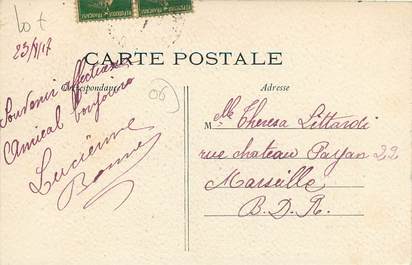 Lot
23/8/17
CARTE POSTALE
Correspondance
Adresse
Souvenir affectueux
Amical bonjour
Lucienne
Bonnet
06
Mlle Theresa Littardi
rue chateau Payan 22
Marseille
B. D. R.